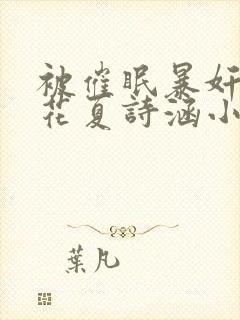 被催眠暴奸
花夏詩涵小
葉凡